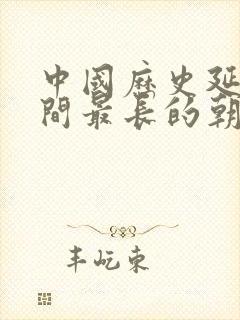 中國歷史延
間最長的朝
丰屹東